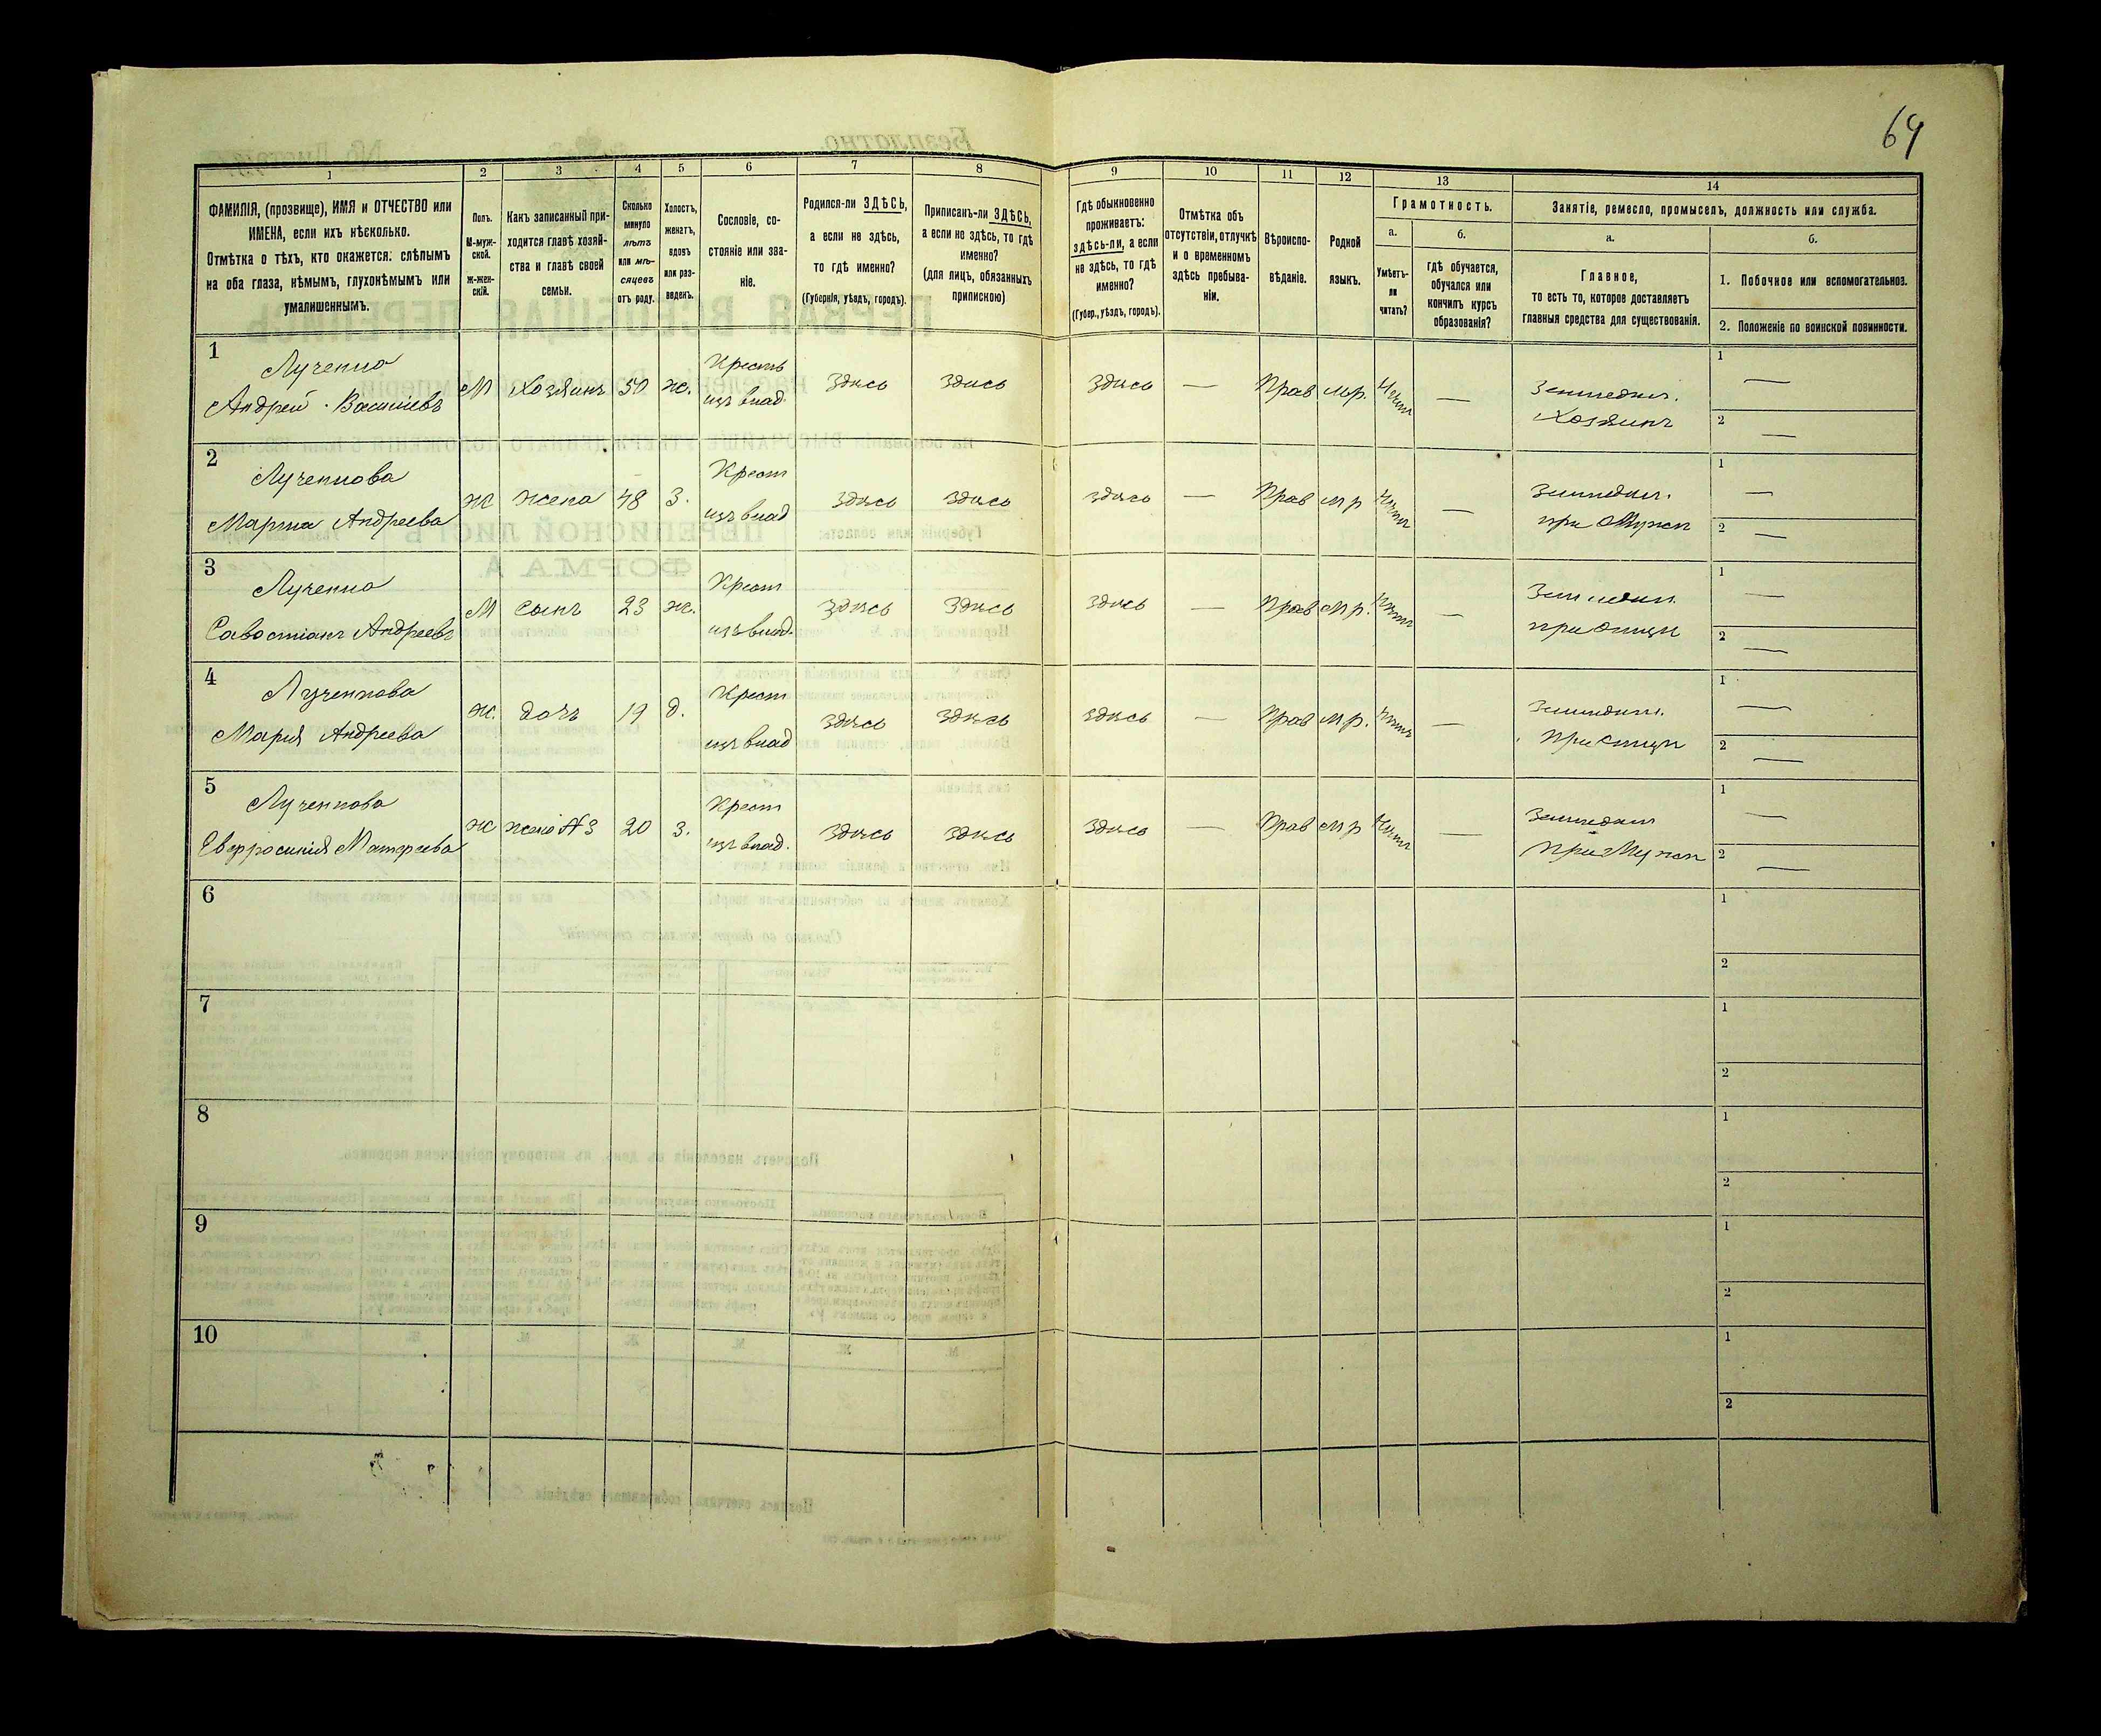 64
1 2 3 4 5 6 7 8 9 10 11 12 13 14
ФАМИЛІЯ, (прозвище), ИМЯ и ОТЧЕСТВО или
ИМЕНА, если ихъ нѣсколько.
Отмѣтка о тѣхъ, кто окажется: слѣпымъ
на оба глаза, нѣмымъ, глухонѣмымъ или
умалишеннымъ.
Полъ.
М-муж-
ской.
Ж-жен-
скій.
Какъ записанный при-
ходится главѣ хозяй-
ства и главѣ своей
семьи.
Сколько
минуло
лѣтъ
или мѣ-
сяцевъ
отъ роду.
Холостъ,
женатъ,
вдовъ
или раз-
веденъ.
Сословіе, со-
стояніе или зва-
ніе.
Родился-ли ЗДѢСЬ,
а если не здѣсь,
то гдѣ именно?
(Губернія, уѣздъ, городъ).
Приписанъ-ли ЗДѢСЬ,
а если не здѣсь, то гдѣ
именно?
(для лицъ, обязанныхъ
припискою)
Гдѣ обыкновенно
проживаетъ:
здѣсь-ли, а если
не здѣсь, то гдѣ
именно?
(Губер., уѣздъ, городъ).
Отмѣтка объ
отсутствіи, отлучкѣ
и о временномъ
здѣсь пребыва-
ніи.
Вѣроиспо-
вѣданіе.
Родной
языкъ.
Грамотность.
а.
Умѣетъ-
ли
читать?
б.
Гдѣ обучается,
обучался или
кончилъ курсъ
образованія?
Занятіе, ремесло, промыселъ, должность или служба.
а.
Главное,
то есть то, которое доставляетъ
главныя средства для существованія.
б.
1. Побочное или вспомогательное.
2. Положеніе по воинской повинности.
1 Лученко Кресть 1 —
Андрей Васильевъ М Хозяинъ 50 ж. изъ влад. здѣсь здѣсь здѣсь — Прав мр. Нѣтъ — Земледѣл.
Хозяинъ 2 —
2 Лученкова Крест 1 —
Марѳа Андреева ж жена 48 З. изъ влад здѣсь здѣсь здѣсь — Прав мр Нѣтъ — Земледѣл.
при Мужѣ 2 —
3 Лученко Крест 1 —
Савостіанъ Андреевъ М Сынъ 23 ж. изъ влад. здѣсь здѣсь здѣсь — Прав мр. Нѣтъ — Земледѣл.
при Отцѣ 2 —
4 Лученкова Крест 1 —
Марія Андреева ж. дочь 19 д. изъ влад здѣсь здѣсь здѣсь — Прав мр. Нѣтъ — Земледѣл.
при Отцѣ 2 —
5 Лученкова Крест 1 —
Евфросинія Матфеева ж жена №3 20 З. изъ влад. здѣсь здѣсь здѣсь — Прав мр Нѣтъ — Земледѣл
при Мужѣ 2 —
6 1
2
7 1
2
8 1
2
9 1
2
10 1
2